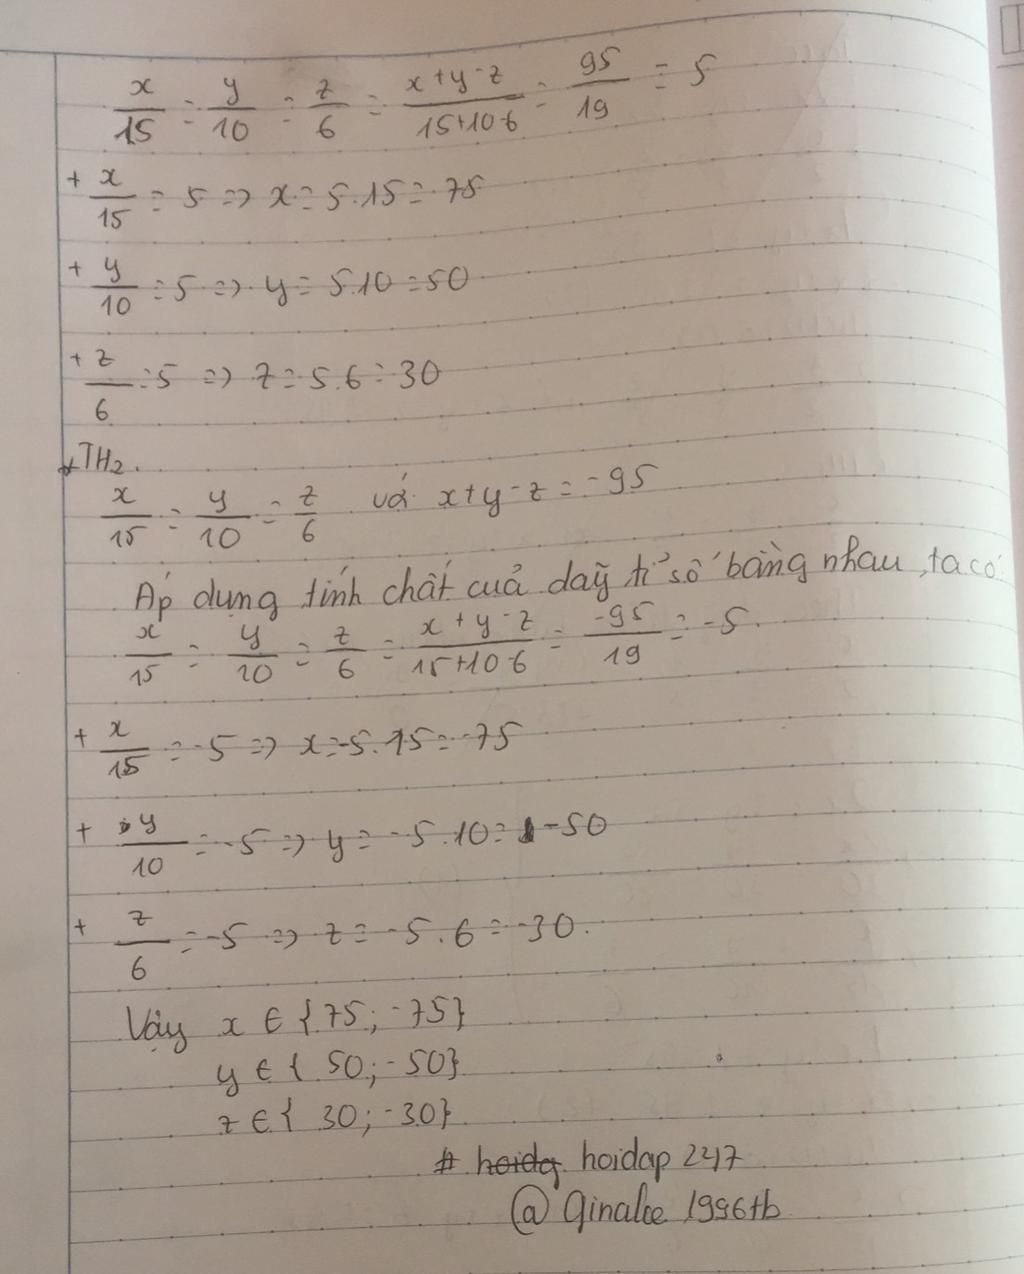 x/15 = y/10 = z/6 = x+y-z/15+10-6 = 95/19 = 5
+ x/15 = 5 => x = 5.15 = 75
+ y/10 = 5 => y = 5.10 = 50
+ z/6 = 5 => z = 5.6 = 30
+ TH2.
x/15 = y/10 = z/6 với x+y-z = -95
Áp dụng tính chất của dãy tỉ số bằng nhau, ta có:
x/15 = y/10 = z/6 = x+y-z/15+10-6 = -95/19 = -5.
+ x/15 = -5 => x = -5.15 = -75
+ y/10 = -5 => y = -5.10 = -50
+ z/6 = -5 => z = -5.6 = -30.
Vậy x ∈ {75; -75}
y ∈ {50; -50}
z ∈ {30; -30}
# hoidap 247
@ Ginalee 1996tb